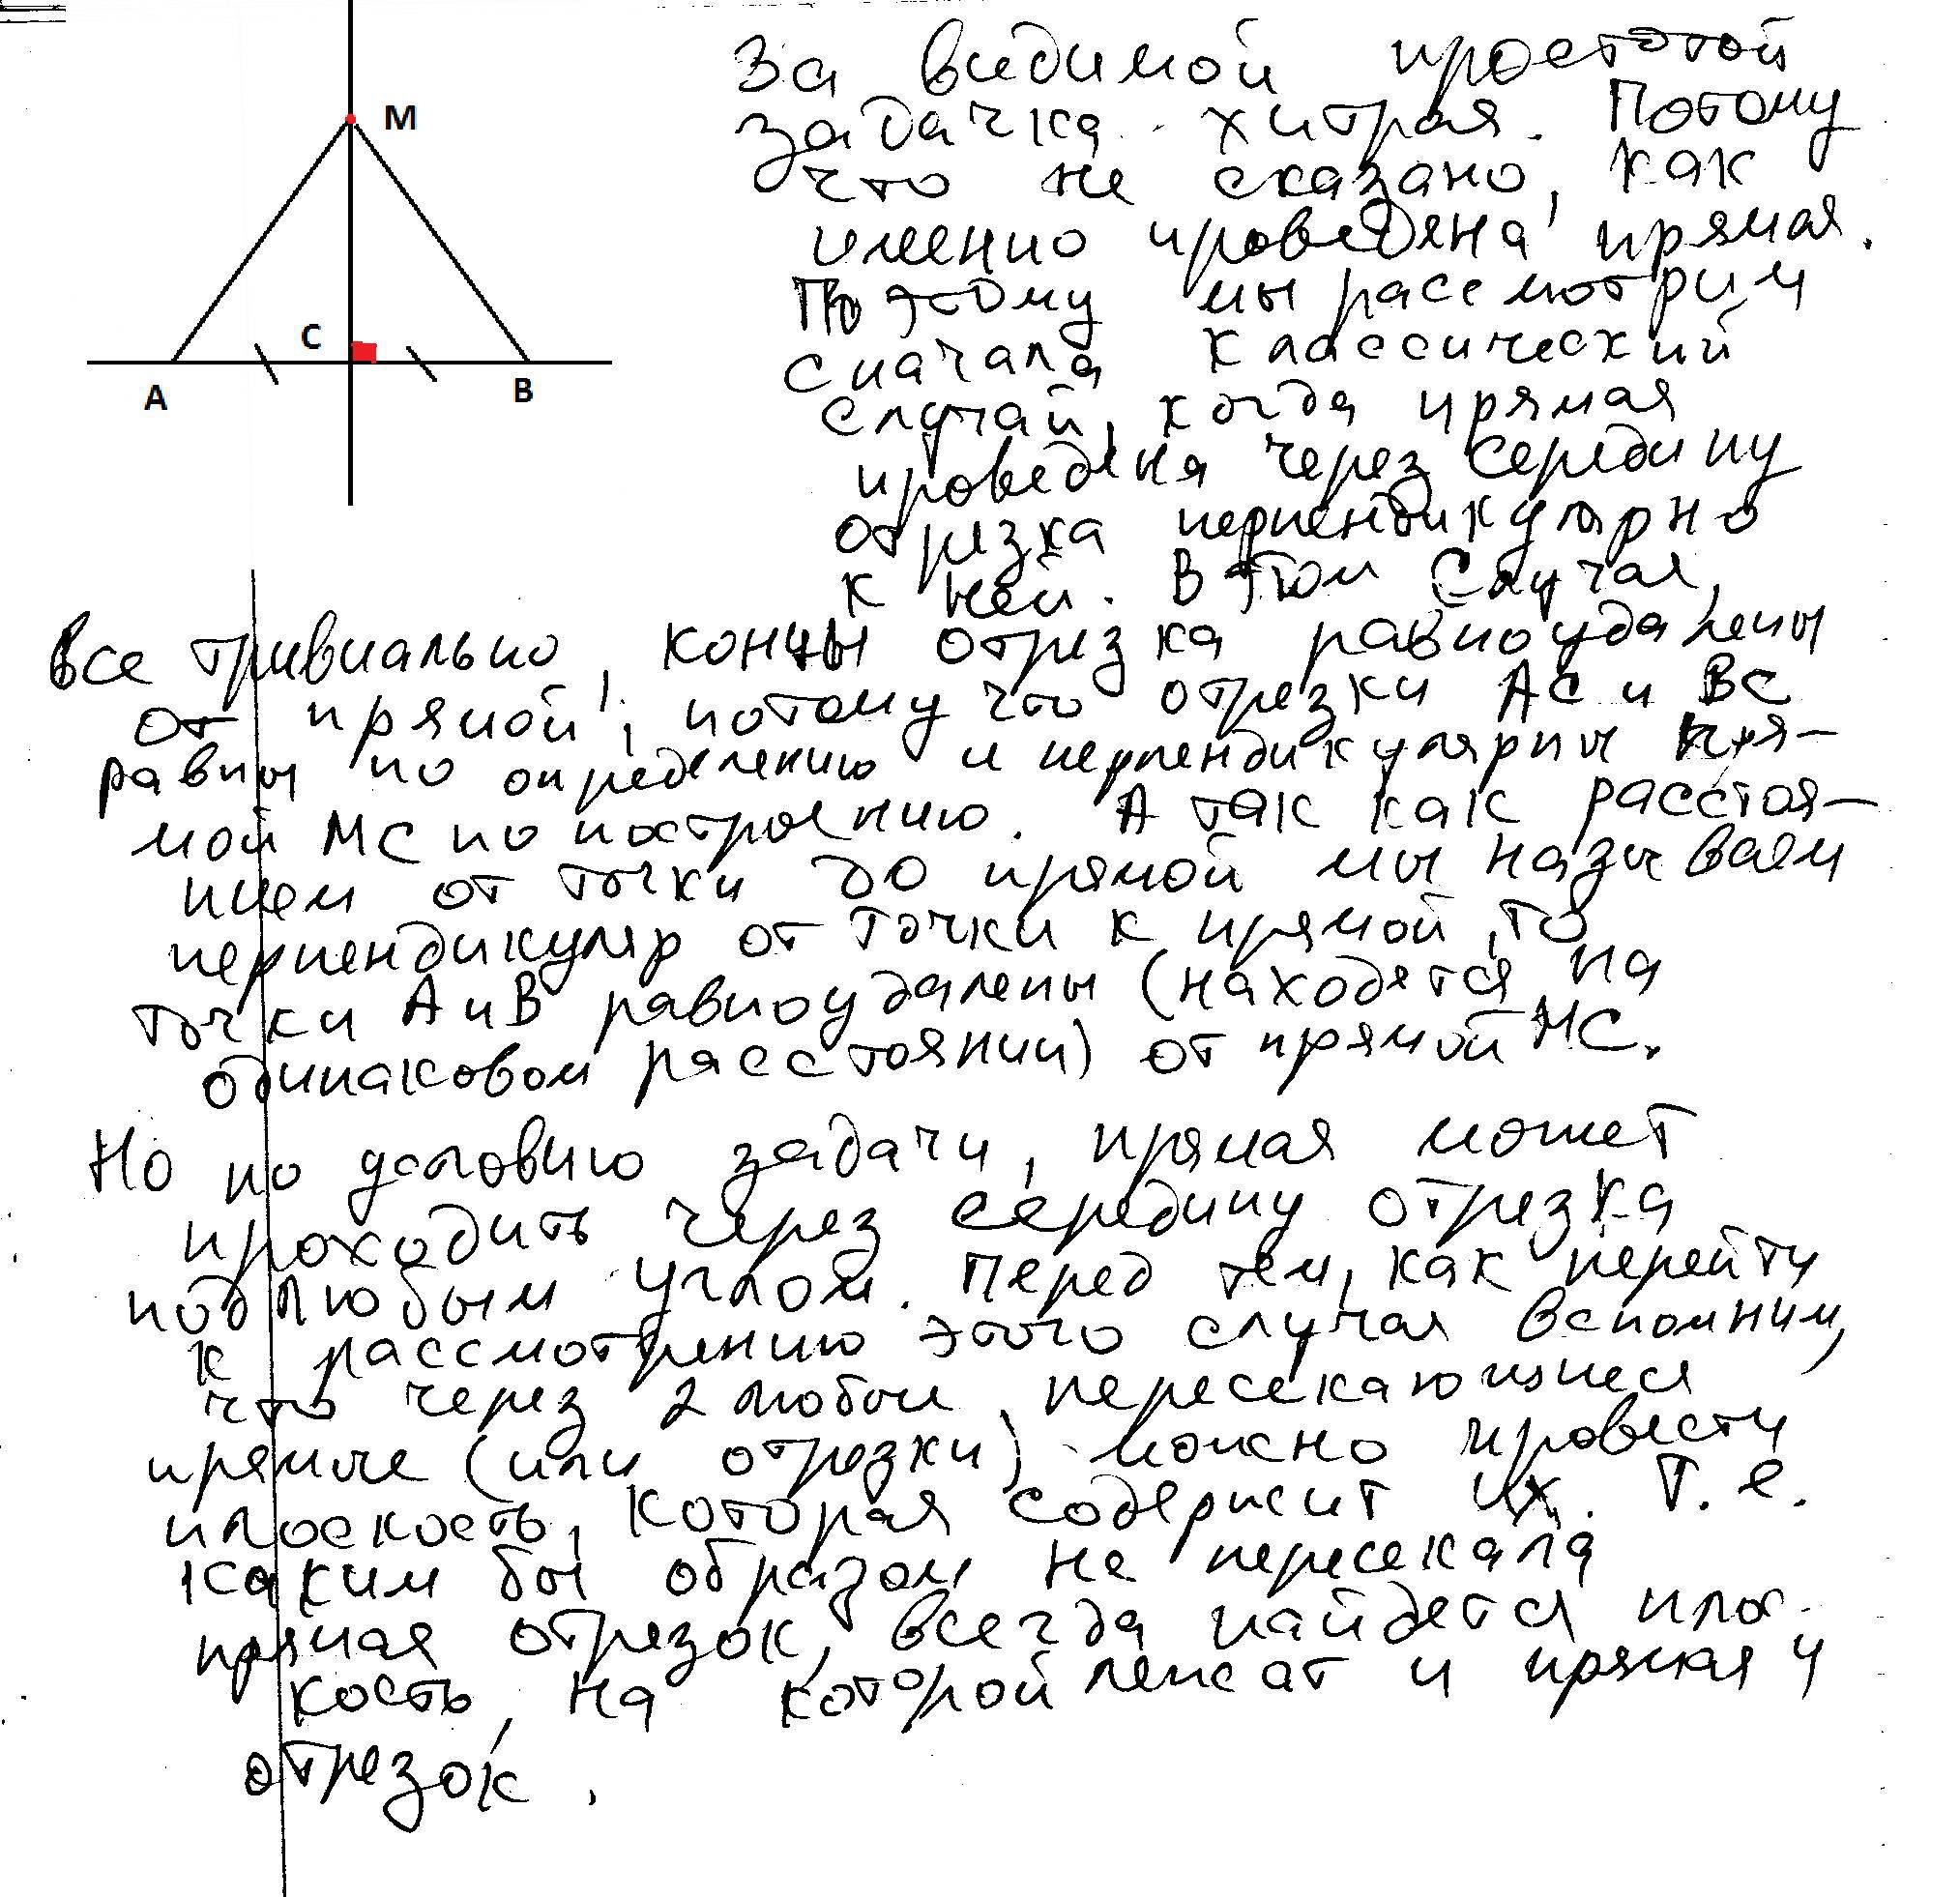 M
C
A
B
За видимой простотой
задачка хитрая. Потому
что не сказано, как
именно проведена прямая.
Поэтому мы рассмотрим
сначала классический
случай, когда прямая
проведена через середину
отрезка перпендикулярно
к ней. В этом случае,
все тривиально, концы отрезка равноудалены
от прямой, потому что отрезки АС и ВС
равны по определению и перпендикулярны пря-
мой МС по построению. А так как расстоя-
нием от точки до прямой мы называем
перпендикуляр от точки к прямой, то
точки А и В равноудалены (находятся на
одинаковом расстоянии) от прямой МС.
Но по условию задачи, прямая может
проходить через середину отрезка
под любым углом. Перед тем, как перейти
к рассмотрению этого случая вспомним,
что через 2 любые пересекающиеся
прямые (или отрезки) можно провести
плоскость, которая содержит их. Т.е.
каким бы образом не пересекала
прямая отрезок, всегда найдется плос-
кость, на которой лежат и прямая и
отрезок.